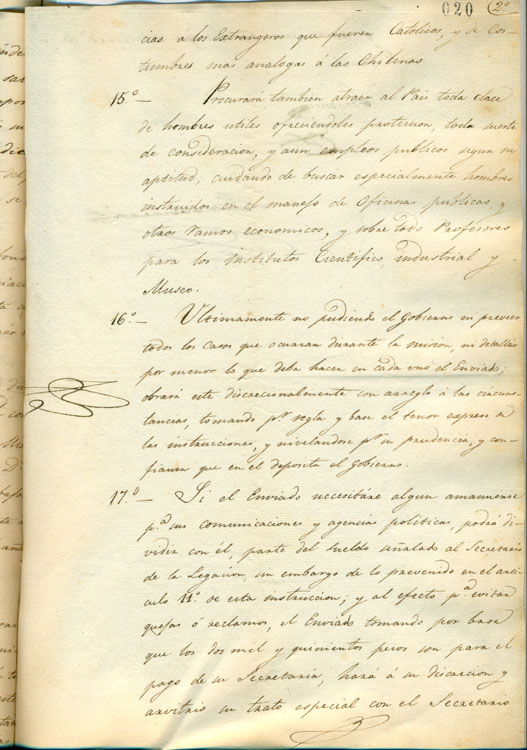 020 2º
cias a los Extrangeros que fueren Catolicos, y de Cos-
tumbres mas analogas á las Chilenas.
15.º— Procurará tambien atraer al Pais toda clace
de hombres utiles ofreciendoles proteccion, toda suerte
de consideracion, y aun empleos publicos segun su
aptitud, cuidando de buscar especialmente hombres
instruidos en el manejo de Oficinas publicas, y
otros ramos economicos, y sobre todo Profesores
para los Institutos Cientifico, industrial y
Museo.
16.º— Ultimamente no pudiendo el Gobierno ni preveer
todos los casos que ocurran durante la mision, ni detallar
por menor lo que deba hacer en cada uno el Enviado;
obrará este discrecionalmente con arreglo á las circuns-
tancias, tomando p.r regla y base el tenor expreso de
las instrucciones, y nivelandose p.r su prudencia, y con-
fianza que en el deposita el Gobierno.
17.º— Si el Enviado necesitáre algun amanuense
p.a sus comunicaciones y agencias politicas, podrá di-
vidir con él, parte del sueldo señalado al Secretario
de la Legacion, sin embargo de lo prevenido en el arti-
culo 11.º de esta instruccion; y al efecto p.a evitar
quejas ó reclamos, el Enviado tomando por base
que los dos mil y quinientos pesos son para el
pago de su Secretaria, hará á su discrecion y
arvitrio su trato especial con el Secretario